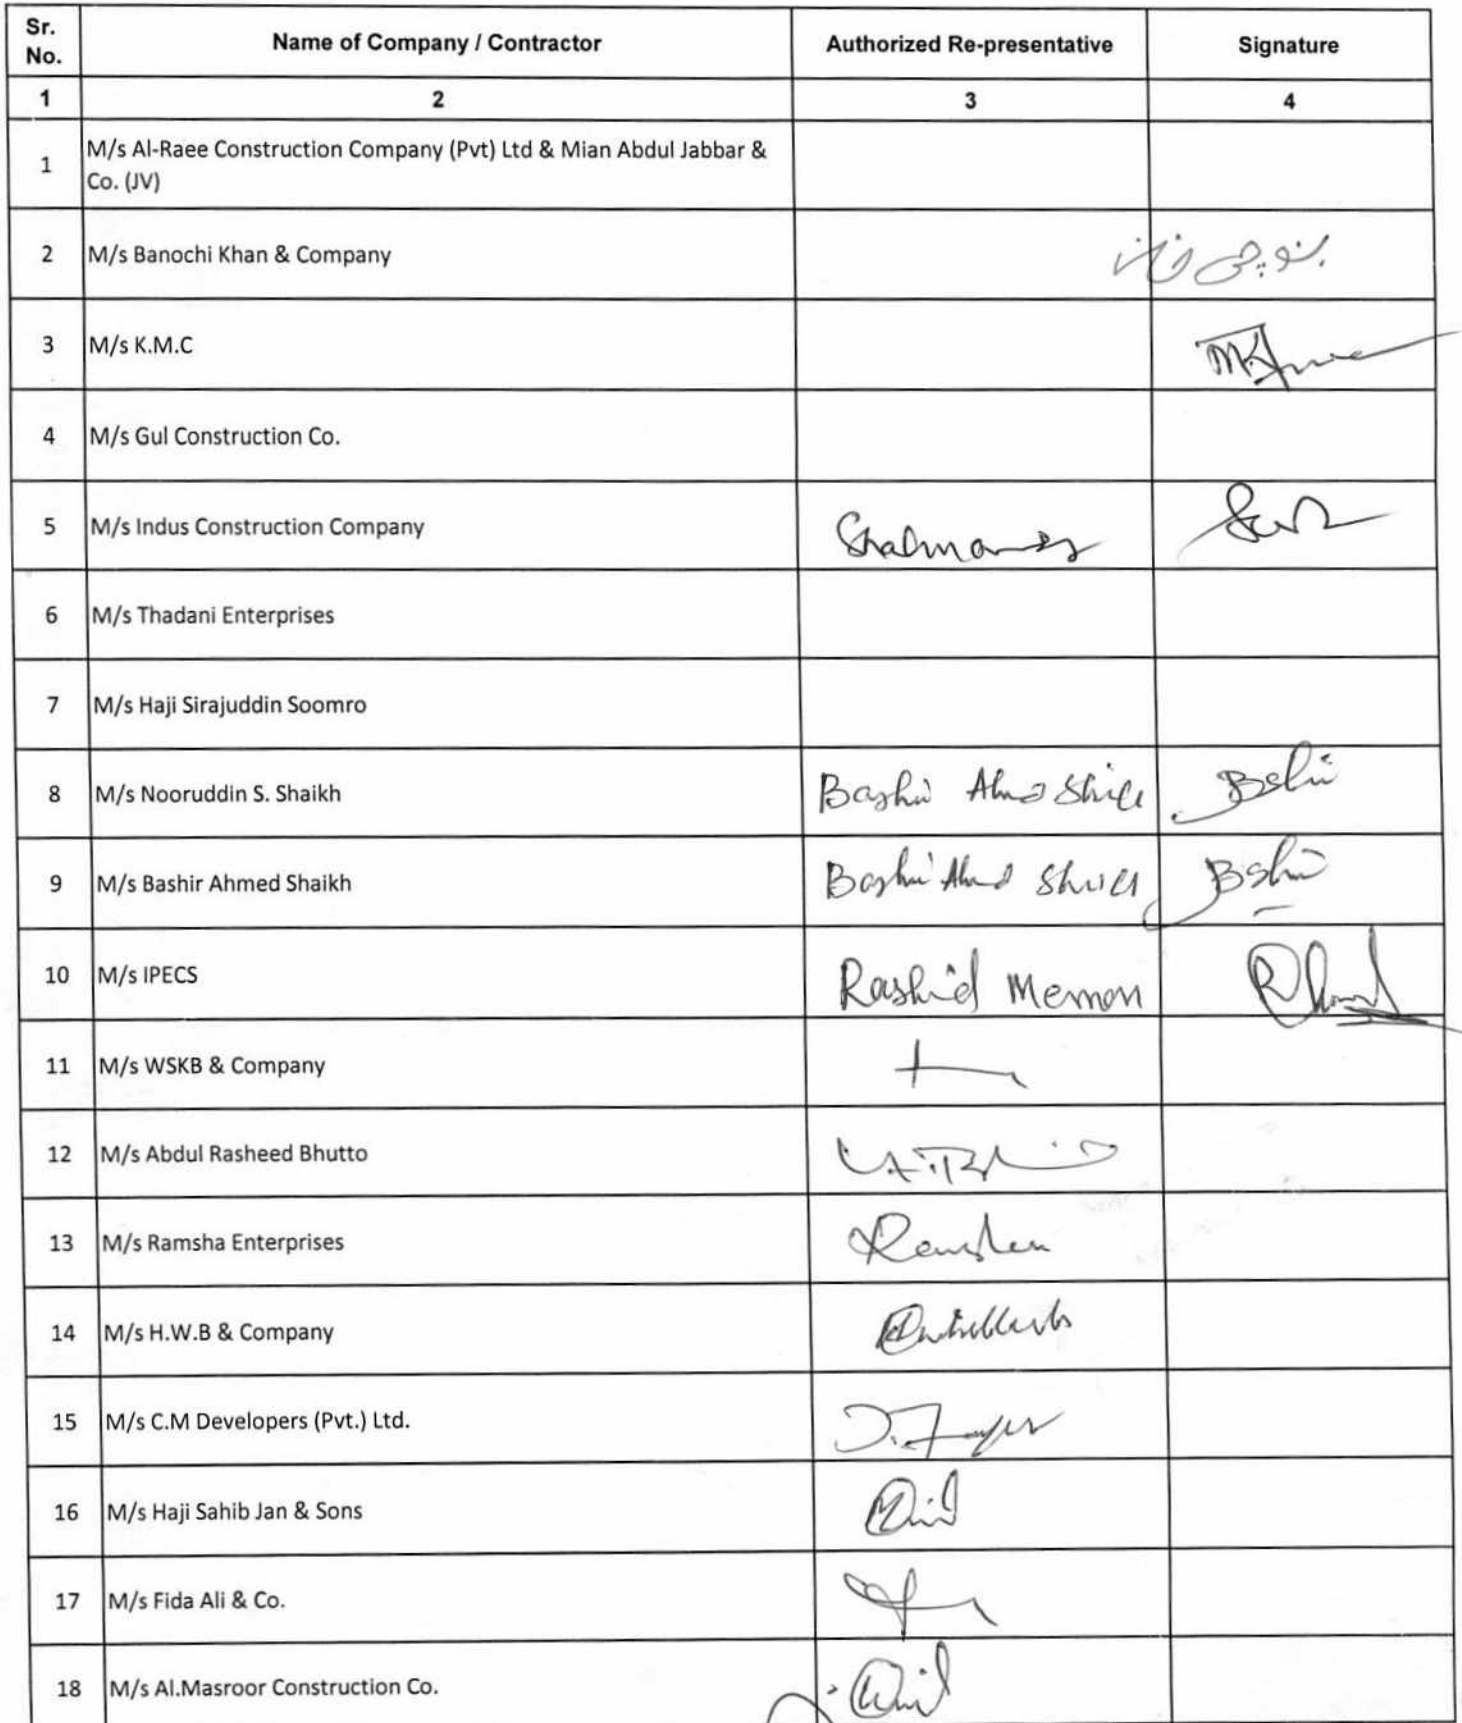 Sr.
No.
Name of Company / Contractor
Authorized Re-presentative
Signature
1
2
3
4
1
M/s Al-Raee Construction Company (Pvt) Ltd & Mian Abdul Jabbar &
Co. (JV)
2
M/s Banochi Khan & Company
بنوچی خان
3
M/s K.M.C
4
M/s Gul Construction Co.
5
M/s Indus Construction Company
6
M/s Thadani Enterprises
7
M/s Haji Sirajuddin Soomro
8
M/s Nooruddin S. Shaikh
9
M/s Bashir Ahmed Shaikh
10
M/s IPECS
Rashid Memon
11
M/s WSKB & Company
12
M/s Abdul Rasheed Bhutto
13
M/s Ramsha Enterprises
14
M/s H.W.B & Company
15
M/s C.M Developers (Pvt.) Ltd.
16
M/s Haji Sahib Jan & Sons
17
M/s Fida Ali & Co.
18
M/s Al.Masroor Construction Co.